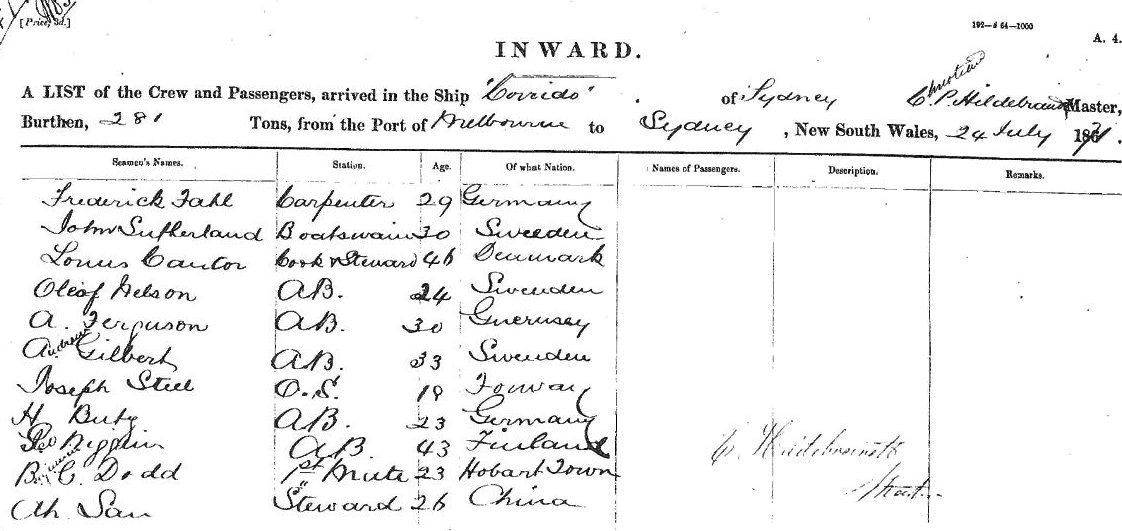 [Price, 3d.]
192—8 64—1000
A. 4.
INWARD.
Christian
A LIST of the Crew and Passengers, arrived in the Ship "Corrido" of Sydney C. P. Hildebrandt Master,
Burthen, 281 Tons, from the Port of Melbourne to Sydney, New South Wales, 24 July 1871.
Seamen's Names. Station. Age. Of what Nation. Names of Passengers. Description. Remarks.
Frederick Fahl Carpenter 29 Germany
John Sutherland Boatswain 30 Sweeden
Louis Cantor Cook & Steward 46 Denmark
Oleof Nelson A.B. 24 Sweeden
A. Ferguson A.B. 30 Guernsey
Andrew Gilbert A.B. 33 Sweeden
Joseph Steel O.S. 18
H A.B. 23 Germany
Geo A.B. 43 Finland
B. C. Dodd 1st Mate 23 Hobart Town
Ah San Steward 26 China
C. Hildebrandt